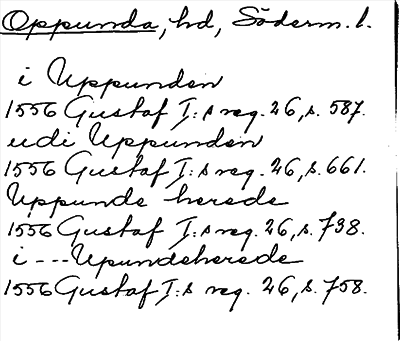 Oppunda, hd, Söderm. l.
i Uppunden
1556 Gustaf I:s reg. 26, s. 587.
udi Uppunden
1556 Gustaf I:s reg. 26, s. 661.
Uppunde herede
1556 Gustaf I:s reg. 26, s. 738.
i --- Upundeherede
1556 Gustaf I:s reg. 26, s. 758.